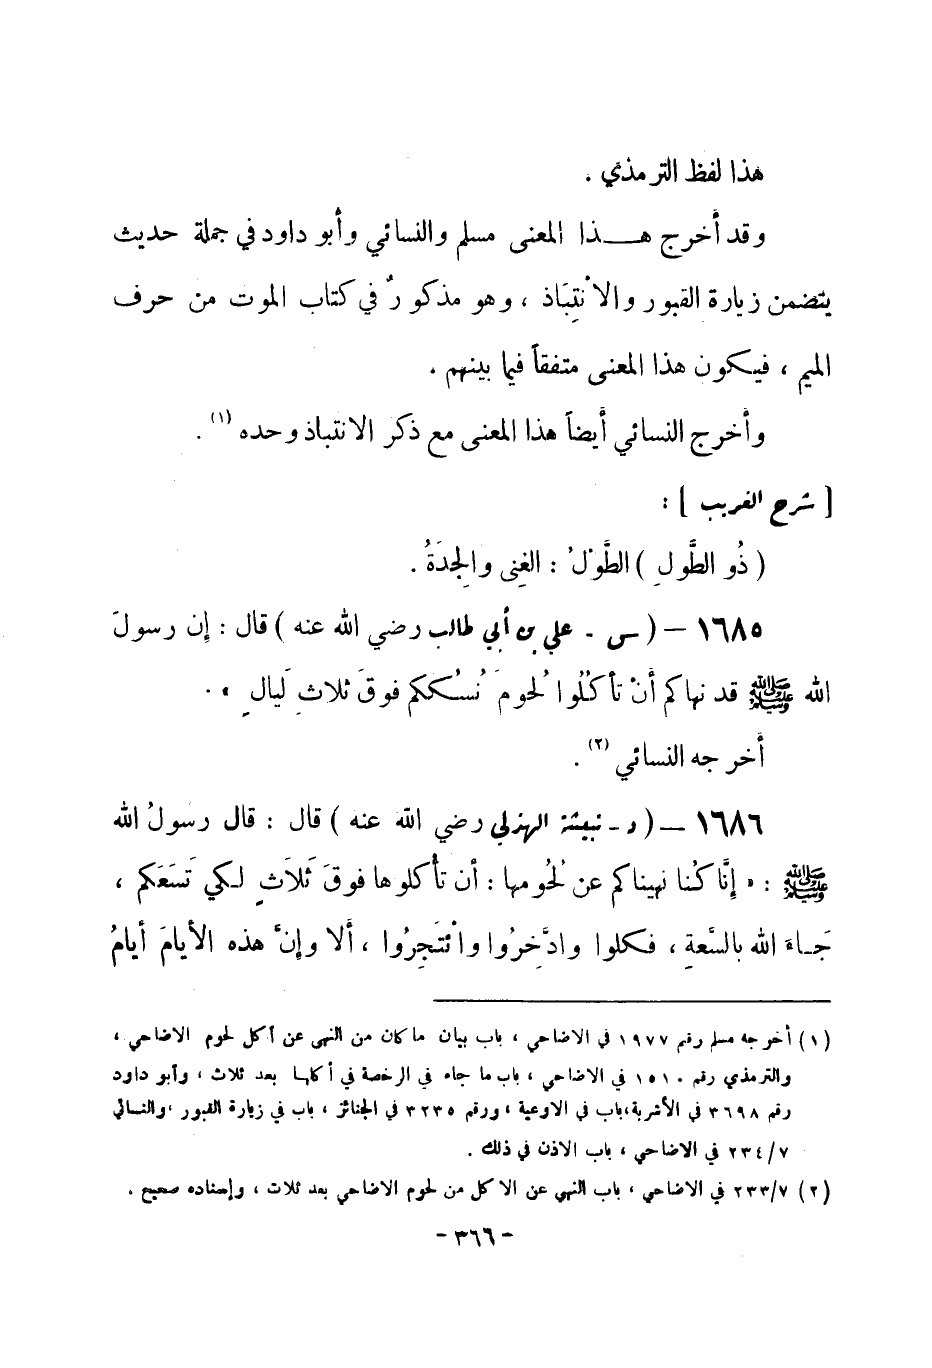 هذا لفظ الترمذي .
وقد أخرج هـــذا المعنى مسلم والنسائي وأبو داود في جملة حديث
يتضمن زيارة القبور والانْتِبَاذ ، وهو مذكورٌ في كتاب الموت من حرف
الميم ، فيكون هذا المعنى متفقاً فيما بينهم .
وأخرج النسائي أيضاً هذا المعنى مع ذكر الانتباذ وحده (١) .
[ شرح الغريب ] :
( ذُو الطَّولِ ) الطَّوْلُ : الغِنى والجِدَةُ .
١٦٨٥ – ( س - علي بن أبي طالب رضي الله عنه ) قال : إن رسولَ
الله ﷺ قد نهاكم أنْ تأكُلُوا لُحومَ نُسُككم فوقَ ثلاثِ لَيالٍ » .
أخرجه النسائي (٢) .
١٦٨٦ – ( د - نبيشة الهذلي رضي الله عنه ) قال : قال رسولُ الله
ﷺ : « إنَّا كُنا نهيناكم عن لُحُومها : أن تأكلوها فوقَ ثَلاثٍ لكي تَسَعَكم ،
جَـاءَ الله بالسَّعةِ ، فكلوا وادَّخِرُوا وائْتَجِرُوا ، ألا وإنَّ هذه الأيامَ أيامُ
(١) أخرجه مسلم رقم ١٩٧٧ في الاضاحي ، باب بيان ما كان من النهي عن أكل لحوم الاضاحي ،
والترمذي رقم ١٥١٠ في الاضاحي ، باب ما جاء في الرخصة في أكلها بعد ثلاث ، وأبو داود
رقم ٣٦٩٨ في الأشربة،باب في الاوعية ، ورقم ٣٢٣٥ في الجنائز ، باب في زيارة القبور ،والنسائي
٢٣٤/٧ في الاضاحي ، باب الاذن في ذلك .
(٢) ٢٣٣/٧ في الاضاحي ، باب النهي عن الاكل من لحوم الاضاحي بعد ثلاث ، وإسناده صحيح .
- ٣٦٦ -